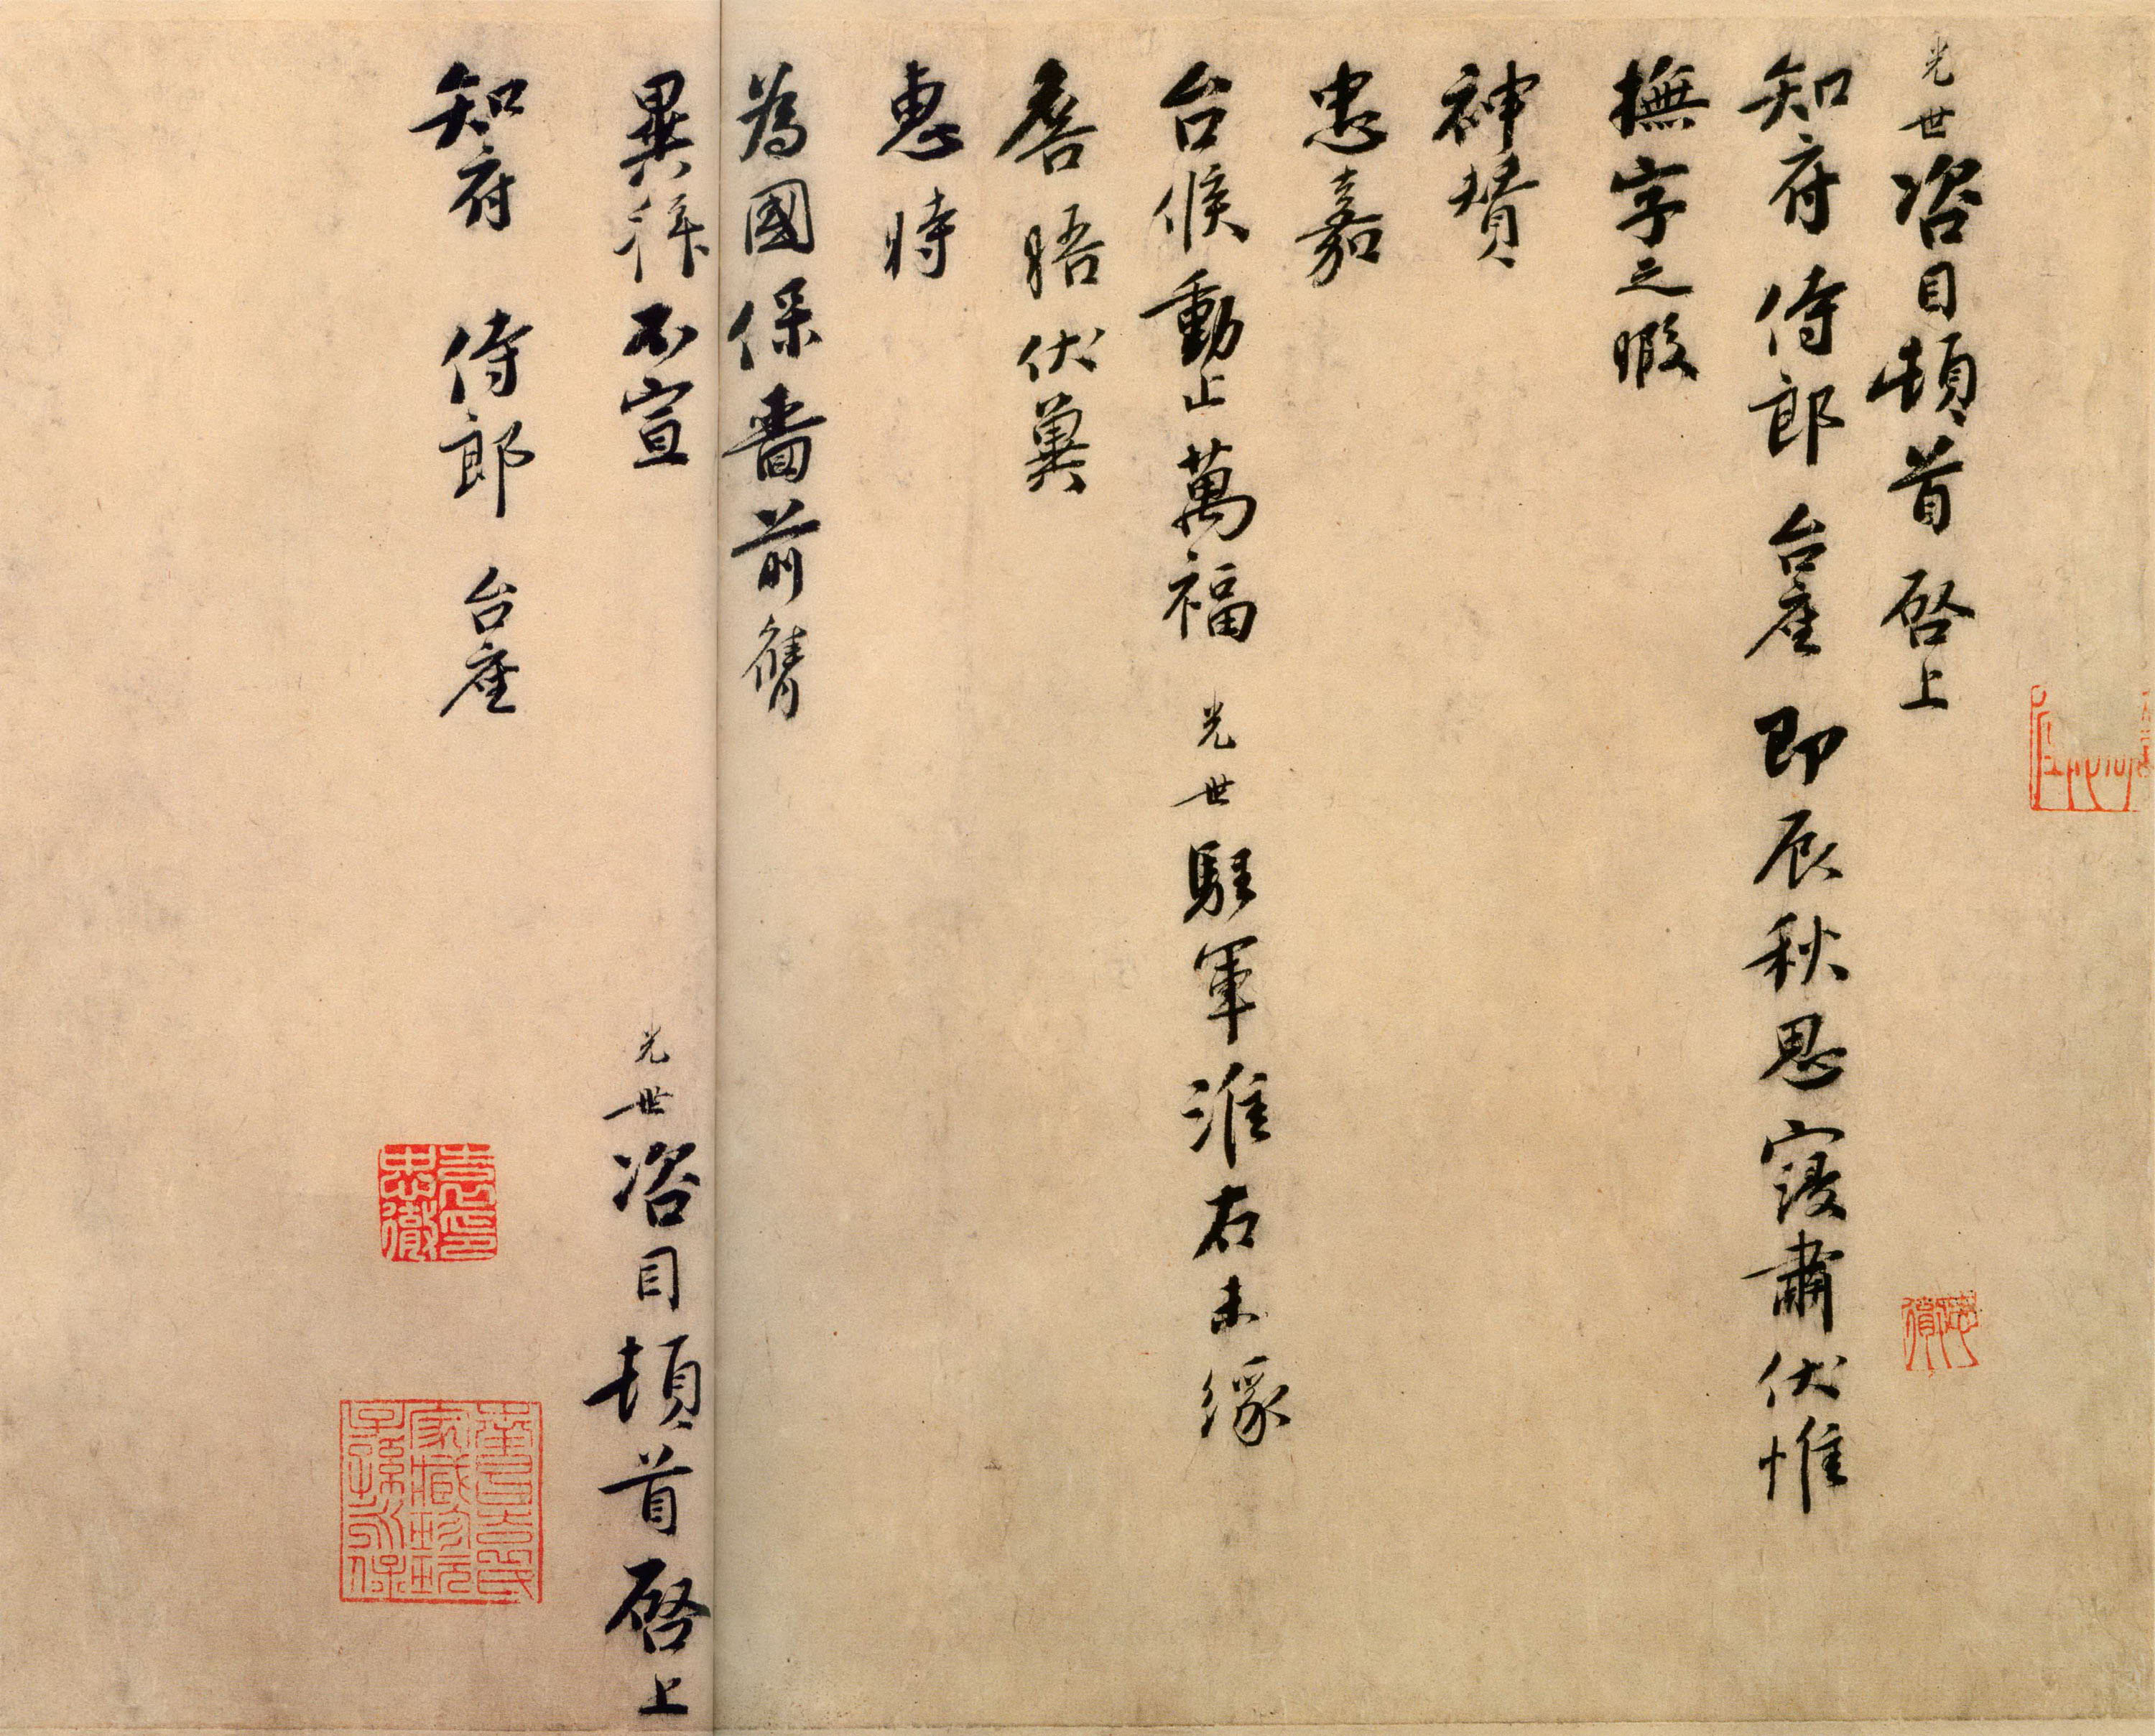 光世咨目頓首啓上
知府侍郎台座即辰秋思寖肅伏惟
撫字之暇
神贊
忠嘉
台候動止萬福光世駐軍淮右未緣
詹晤伏冀
惠時
為國保嗇前膺
異拜不宣光世咨目頓首啓上
知府侍郎台座
忠徹
家藏珍玩